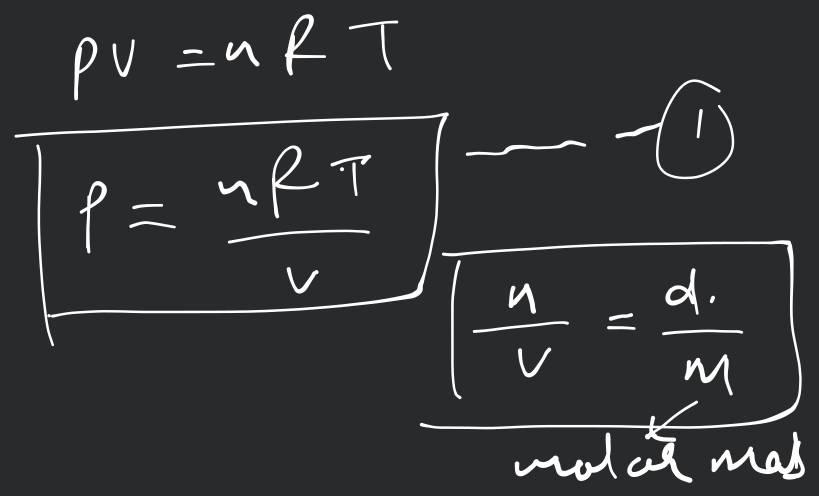 PV = nRT
P = nRT / V — — 1
n / V = d. / M
molar mas